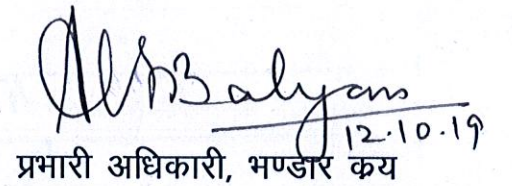 Balyan
12.10.19
प्रभारी अधिकारी, भण्डार कय